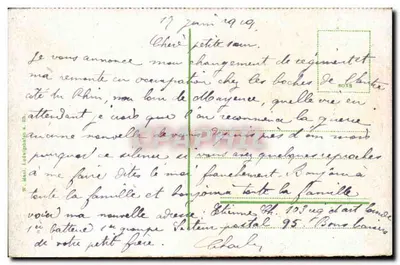 17 juin 1919.
Cher petite sœur
Je vous annonce mon changement de régiment et
ma remonte en occupation chez les boches de l'autre
côté du Rhin, non loin de Mayence, quelle vie en
attendant je crois que l'on recommence la guerre
aucune nouvelle de vous depuis pas d'un mois
pourquoi ce silence si vous avez quelques reproches
à me faire dites le moi franchement. Bonjour à
toute la famille et bonjour à toute la famille
voici ma nouvelle adresse. Etienne Ch. 103 reg d'art lourde
batterie groupe Secteur postal 95. Bons baisers
de votre petit frère. Charles